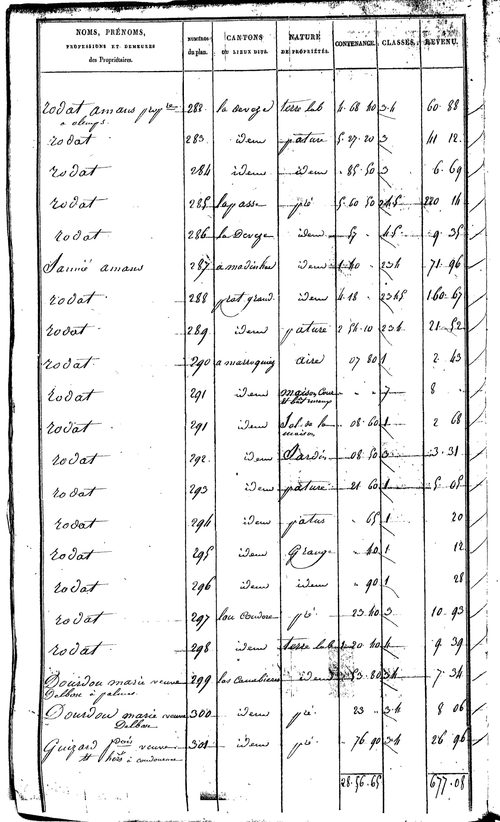 NOMS, PRÉNOMS, PROFESSIONS ET DEMEURES des Propriétaires. NUMÉROS du plan. CANTONS OU LIEUX DITS. NATURE DE PROPRIÉTÉS. CONTENANCE. CLASSES. REVENU.
rodat amans 282 la deveze terre lab 4. 68 40 34 60. 88
a olemps
rodat 283 idem pature 5. 27. 20 3 41 12.
rodat 284 idem idem . 85. 50 3 6. 69
rodat 285 la passe pré 5. 60 50 245 220 14
rodat 286 la deveze idem 57 45 9. 35
amans 287 idem 234 71. 96
rodat 288 prat grand idem 4. 18 2345 160. 67
rodat 289 idem pature 2 54. 10 234 21. 52
rodat 290 aire 07 80 1 2. 43
rodat 291 idem maison Cour 7 8
rodat 291 idem Sol de la maison 08 60 1 2 68
rodat 292 idem Jardin 08 50 3 3. 31
rodat 293 idem pature 21 60 1 5. 05
rodat 294 idem patus . 65 1 20
rodat 295 idem Grange . 40 1 12
rodat 296 idem idem . 90 1 28
rodat 297 pré 23. 40 3 10. 93
rodat 298 idem terre lab 1. 20 40 4 9. 39
Dourdou marie veuve 299 idem 53. 80 34 7. 34
Dourdou marie veuve 300 idem pré 23 34 8 06
Guizard veuve 301 idem pré . 76 90 34 26 96
28. 56. 65 677. 08